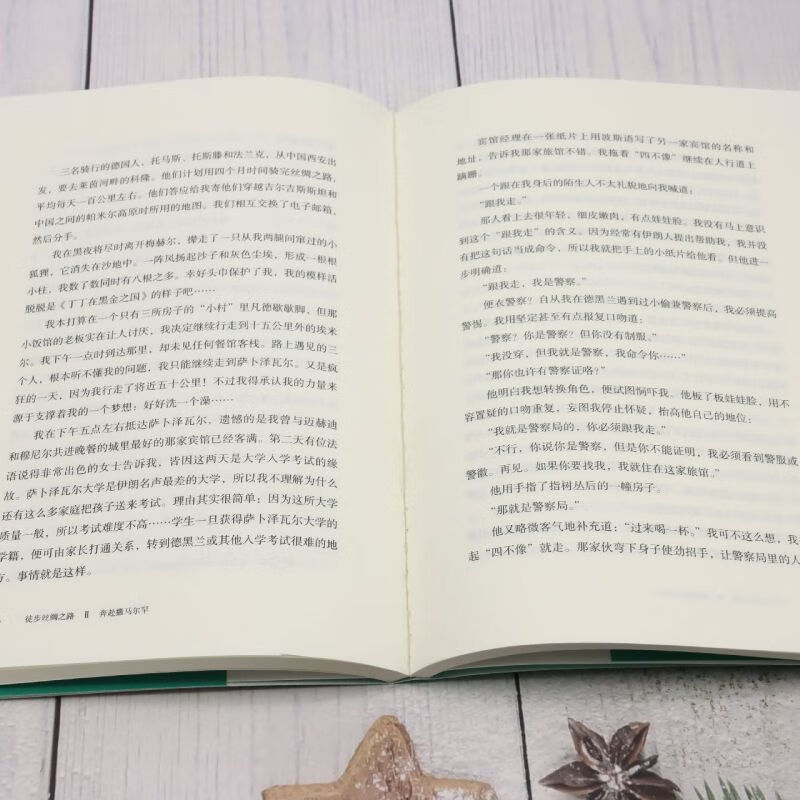 三名骑行的德国人，托马斯、托斯滕和法兰克，从中国西安出
发，要去莱茵河畔的科隆。他们计划用四个月时间骑完丝绸之路，
平均每天一百公里左右。他们答应给我寄他们穿越吉尔吉斯斯坦和
中国之间的帕米尔高原时所用的地图。我们相互交换了电子邮箱，
然后分手。
我在黑夜将尽时离开梅赫尔，撵走了一只从我两腿间窜过的小
狐狸，它消失在沙地中。一阵风扬起沙子和灰色尘埃，形成一根根
小柱，我数了数同时有八根之多。幸好头巾保护了我，我的模样活
脱脱是《丁丁在黑金之国》的样子吧……
我本打算在一个只有三所房子的“小村”里凡德歇歇脚，但那
小饭馆的老板实在让人讨厌，我决定继续行走到十五公里外的埃米
尔。我下午一点时到达那里，却未见任何餐馆客栈。路上遇见的三
个人，根本听不懂我的问题，我只能继续走到萨卜泽瓦尔。又是疯
狂的一天，因为我行走了将近五十公里！不过我得承认我的力量来
源于支撑着我的一个梦想：好好洗一个澡……
我在下午五点左右抵达萨卜泽瓦尔，遗憾的是我曾与迈赫迪
和穆尼尔共进晚餐的城里最好的那家宾馆已经客满。第二天有位法
语说得非常出色的女士告诉我，皆因这两天是大学入学考试的缘
故。萨卜泽瓦尔大学是伊朗名声最差的大学，所以我不理解为什么
还有这么多家庭把孩子送来考试。理由其实很简单：因为这所大学
质量一般，所以考试难度不高……学生一旦获得萨卜泽瓦尔大学的
学籍，便可由家长打通关系，转到德黑兰或其他入学考试很难的地
方。事情就是这样。
徒步丝绸之路 Ⅱ 奔赴撒马尔罕
宾馆经理在一张纸片上用波斯语写了另一家宾馆的名称和
地址，告诉我那家旅馆不错。我拖着“四不像”继续在人行道上
蹒跚。
一个跟在我身后的陌生人不太礼貌地向我喊道：
“跟我走。”
那人看上去很年轻，细皮嫩肉，有点娃娃脸。我没有马上意识
到这个“跟我走”的含义。因为经常有伊朗人提出帮助我，我并没
有把这句话当成命令，所以我就把手上的小纸片给他看。但他进一
步明确道：
“跟我走，我是警察。”
便衣警察？自从我在德黑兰遇到过小偷兼警察后，我必须提高
警惕。我用坚定甚至有点报复口吻道：
“警察？你是警察？但你没有制服。”
“我没穿，但我就是警察，我命令你……”
“那你也许有警察证咯？”
他明白我想转换角色，便试图恫吓我。他板了板娃娃脸，用不
容置疑的口吻重复，妄图我停止怀疑，抬高他自己的地位：
“我就是警察局的，你必须跟我走。”
“不行，你说你是警察，但是你不能证明，我必须看到警服或
警徽。再见。如果你要找我，我就住在这家旅馆。”
他用手指了指树丛后的一幢房子。
“那就是警察局。”
他又略微客气地补充道：“过来喝一杯。”我可不这么想，我
起“四不像”就走。那家伙弯下身子使劲招手，让警察局里的人